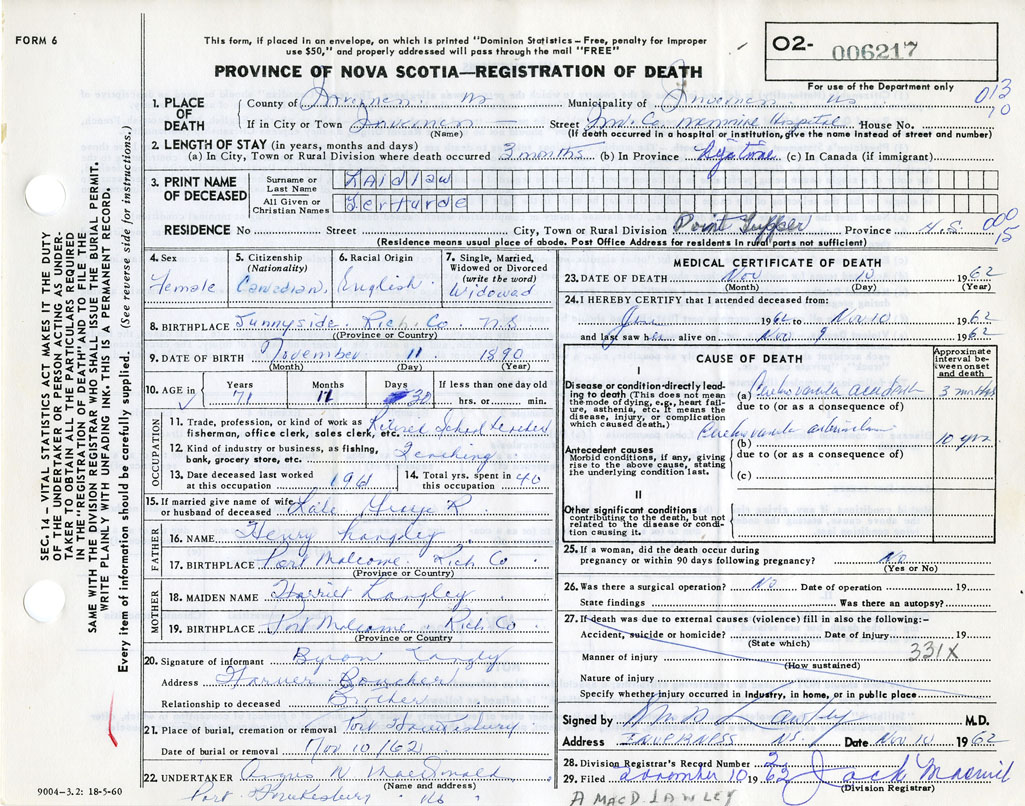 FORM 6
This form, if placed in an envelope, on which is printed "Dominion Statistics – Free, penalty for improper
use $50," and properly addressed will pass through the mail "FREE"
PROVINCE OF NOVA SCOTIA—REGISTRATION OF DEATH
O2- 006217
For use of the Department only
013
70
1. PLACE OF DEATH
County of Inverness Municipality of Inverness
If in City or Town Inverness Street Inv. Co. Memorial Hospital House No.
(Name) (If death occurred in a hospital or institution, give the name instead of street and number)
2. LENGTH OF STAY (in years, months and days)
(a) In City, Town or Rural Division where death occurred 3 months (b) In Province Lifetime (c) In Canada (if immigrant)
3. PRINT NAME OF DECEASED
Surname or Last Name Laidlaw
All Given or Christian Names Gerturde
RESIDENCE No Street City, Town or Rural Division Point Tupper Province N.S.
000
15
(Residence means usual place of abode. Post Office Address for residents in rural parts not sufficient)
4. Sex Female
5. Citizenship (Nationality) Canadian
6. Racial Origin English
7. Single, Married, Widowed or Divorced (write the word) Widowad
8. BIRTHPLACE Sunnyside. Rich. Co. N.S
(Province or Country)
9. DATE OF BIRTH November 11 1890
(Month) (Day) (Year)
10. AGE in Years 71 Months 11 Days 30 If less than one day old hrs. or min.
OCCUPATION
11. Trade, profession, or kind of work as fisherman, office clerk, sales clerk, etc. Retired School teacher
12. Kind of industry or business, as fishing, bank, grocery store, etc. Teaching
13. Date deceased last worked at this occupation 1961
14. Total yrs. spent in this occupation 40
15. If married give name of wife or husband of deceased Late George R
FATHER
16. NAME Henry Langley
17. BIRTHPLACE Port Malcome Rich Co
(Province or Country)
MOTHER
18. MAIDEN NAME Harriet Langley
19. BIRTHPLACE Port Malcome Rich Co
(Province or Country
20. Signature of informant Byron Langley
Address
Relationship to deceased Brother
21. Place of burial, cremation or removal Port Hawkesbury
Date of burial or removal Nov 10/62
22. UNDERTAKER Angus N MacDonald
(Name and address)
Port Hawkesbury
9004—3.2: 18-5-60
MEDICAL CERTIFICATE OF DEATH
23. DATE OF DEATH Nov 10 1962
(Month) (Day) (Year)
24. I HEREBY CERTIFY that I attended deceased from:
1962 to Nov 10 1962
and last saw h alive on Nov 9 1962
CAUSE OF DEATH
Approximate interval between onset and death
I
Disease or condition-directly leading to death (This does not mean the mode of dying, e.g., heart failure, asthenia, etc. It means the disease, injury, or complication which caused death.)
(a) 3 months
due to (or as a consequence of)
Antecedent causes
Morbid conditions, if any, giving rise to the above cause, stating the underlying condition last.
(b) 10 yrs
due to (or as a consequence of)
(c)
II
Other significant conditions contributing to the death, but not related to the disease or condition causing it.
25. If a woman, did the death occur during pregnancy or within 90 days following pregnancy? No
(Yes or No)
26. Was there a surgical operation? No Date of operation 19
State findings Was there an autopsy?
27. If death was due to external causes (violence) fill in also the following:-
Accident, suicide or homicide? Date of injury 19
(State which)
Manner of injury 331X
(How sustained)
Nature of injury
Specify whether injury occurred in Industry, in home, or in public place
Signed by Lawley M.D.
Address INVERNESS NS. Date Nov 10 1962
28. Division Registrar's Record Number 3
29. Filed November 10 1962 Jack
(Division Registrar)
A MACD. LAWLEY
SEC. 14 – VITAL STATISTICS ACT MAKES IT THE DUTY
OF THE UNDERTAKER OR PERSON ACTING AS UNDER-
TAKER TO OBTAIN ALL THE PARTICULARS REQUIRED
IN THE "REGISTRATION OF DEATH" AND TO FILE THE
SAME WITH THE DIVISION REGISTRAR WHO SHALL ISSUE THE BURIAL PERMIT.
WRITE PLAINLY WITH UNFADING INK. THIS IS A PERMANENT RECORD.
Every item of information should be carefully supplied. (See reverse side for instructions.)